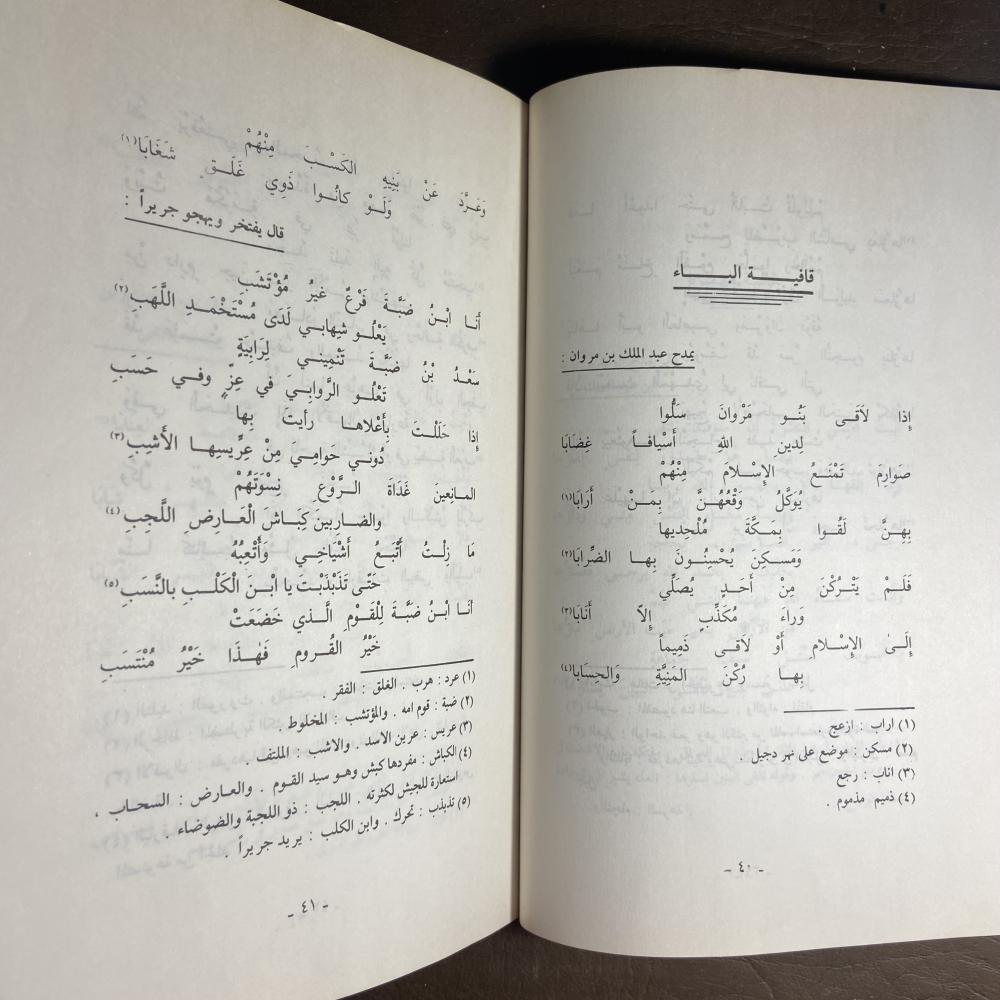 قافيـــة البـــاء
يمدح عبد الملك بن مروان :
إِذا لَاقَى بَنُــو مَرْوانَ سَلُّوا
لِدينِ اللهِ أَسْيافــاً غِضَابَا
صَوَارِمَ تَمْنَــعُ الإِسْــلامَ مِنْهُمْ
يُوَكَّلُ وَقْعُهُــنَّ بِمَــنْ أَرَابَا(١)
بِهِــنَّ لَقُــوا بِمَكَّةَ مُلْحِديها
وَمَسْــكِنَ يُحْسِنُــونَ بِهــا الضِّرَابَا(٢)
فَلَــمْ يَتْــرُكْنَ مِنْ أَحَــدٍ يُصَلِّي
وَراءَ مُكَذِّبٍ إِلاَّ أَنَابَا(٣)
إِلَــىٰ الإِسْــلامِ أَوْ لاَقــى ذَمِيماً
بِهــا رُكْنَ المَنِيَّةِ وَالحِسَابَا(٤)
(١) اراب : ازعج .
(٢) مسكن : موضع على نهر دجيل .
(٣) اناب : رجع
(٤) ذميم مذموم .
- ٤٠ -
وَعَــرَّدَ عَنْ بَنِيهِ الكَسْــبَ مِنْهُمْ
وَلَــوْ كانُــوا ذَوِي غَلَــقٍ شَغَابَا(١)
قال يفتخر ويهجو جريراً :
أَنــا ابْــنُ ضَبَّــةَ فَرْعٌ غيرُ مُؤْتَشَبِ
يَعْلُــو شِهابي لَدَى مُسْتَخْمَــدِ اللَّهَبِ(٢)
سَعْدُ بْنُ ضَبَّــةَ تَنْمِينــي لِرَابِيَةٍ
تَعْلُــو الرَّوابِيَ في عِزٍّ وفــي حَسَبِ
إِذا حَلَلْــتَ بِأَعْلاهــا رأيتَ بِها
دُوني حَوامِيَ مِنْ عِرِّيسِهــا الأَشِبِ(٣)
المـانِعينَ غَدَاةَ الــرَّوْعِ نِسْوَتَهُمْ
والضـاربينَ كِبَـاشَ الْعَـارِضِ اللَّجِبِ(٤)
مَا زِلْــتُ أَتْبَعُ أَشْيَاخِــي وَأُتْعِبُهُ
حَتَّى تَذَبْذَبْتَ يا ابْــنَ الْكَلْــبِ بالنَّسَبِ(٥)
أَنَــا ابْــنُ ضَبَّةَ لِلْقَــوْمِ الَّــذي خَضَعَتْ
خَيْرُ القُــرومِ فَهٰــذَا خَيْرُ مُنْتَسَبِ
(١) عرد : هرب . الغلق : الفقر .
(٢) ضبة : قوم امه . والمؤتشب : المخلوط .
(٣) عريس : عرين الاسد . والاشب : الملتف .
(٤) الكباش : مفردها كبش وهو سيد القوم . والعارض : السحاب ،
استعارة للجيش لكثرته . اللجب : ذو اللجبة والضوضاء .
(٥) تذبذب : تحرك . وابن الكلب : يريد جريراً .
- ٤١ -